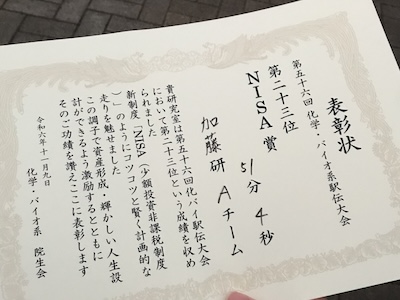 表彰状
第五十六回 化学・バイオ系駅伝大会
第二十三位
NISA賞 51分 4秒
加藤研 Aチーム
貴研究室は第五十六回化バイ駅伝大会
において第二十三位という成績を収め
られました
新制度「NISA（少額投資非課税制度
）」のようにコツコツと賢く計画的な
走りを魅せました
この調子で資産形成・輝かしい人生設
計ができるよう激励するとともに
そのご功績を讃えここに表彰します
令和六年十一月九日
化学・バイオ系 院生会